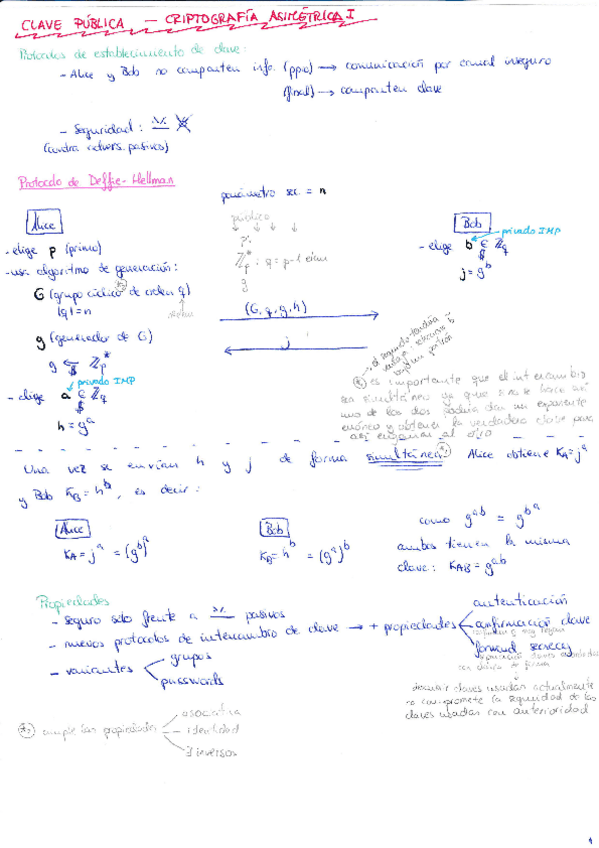 CLAVE PÚBLICA — CRIPTOGRAFÍA ASIMÉTRICA I
Protocolos de establecimiento de clave:
- Alice y Bob no comparten info. (ppio) → comunicación por canal inseguro
(final) → comparten clave
- Seguridad:
(contra advers. pasivos)
Protocolo de Deffie-Hellman
parámetro sec. = n
público
Alice
Bob
- elige p (primo)
- usa algoritmo de generación:
G (grupo cíclico de orden q)
|q| = n
orden
g (generador de G)
g ←$ Zp*
privado IMP
- elige a ∈$ Zq
h = g^a
p:
Zp*: q = p-1 elem
g
(G, q, g, h)
j
privado IMP
- elige b ∈$ Zq
j = g^b
→ el segundo tendría
(*) es importante que el intercambio
sea simultáneo ya que si no se hace así
uno de los dos podría dar un exponente
erróneo y obtener la verdadera clave para
así engañar al otro
Una vez se envían h y j de forma simultánea(*) Alice obtiene KA = j^a
y Bob KB = h^b, es decir:
Alice
KA = j^a = (g^b)^a
Bob
KB = h^b = (g^a)^b
como g^ab = g^ba
ambos tienen la misma
clave: KAB = g^ab
Propiedades
- seguro sólo frente a pasivos
- nuevos protocolos de intercambio de clave → + propiedades
autenticación
confirmación clave
forward secrecy
- variantes
grupos
passwords
claves usadas actualmente
no compromete la seguridad de las
claves usadas con anterioridad
cumple las propiedades
asociativa
identidad
inversos